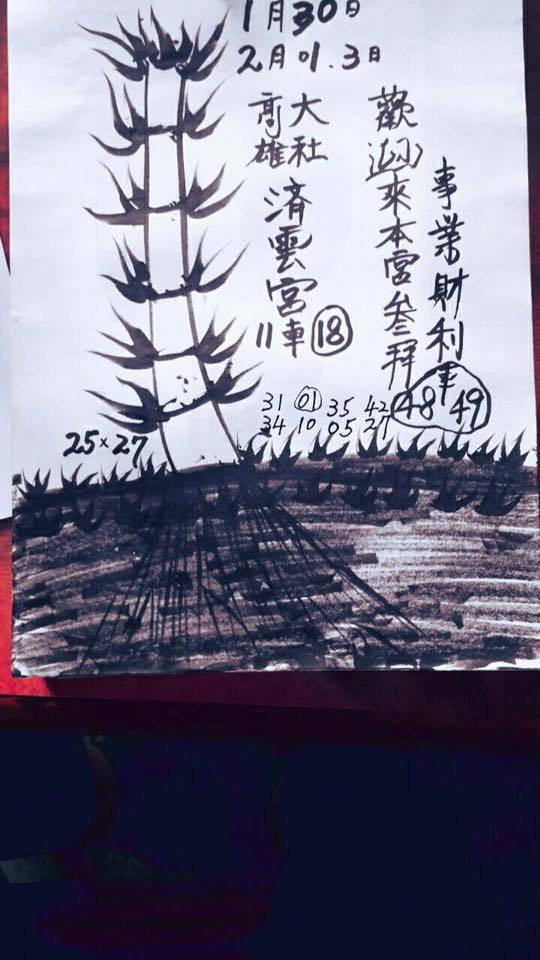 1月30日
2月01.3日
事業財利
車
48 49
歡迎來本宮叄拜
大社
高雄
済雲宮
11車 18
31 01 35 42
34 10 05 27
25×27